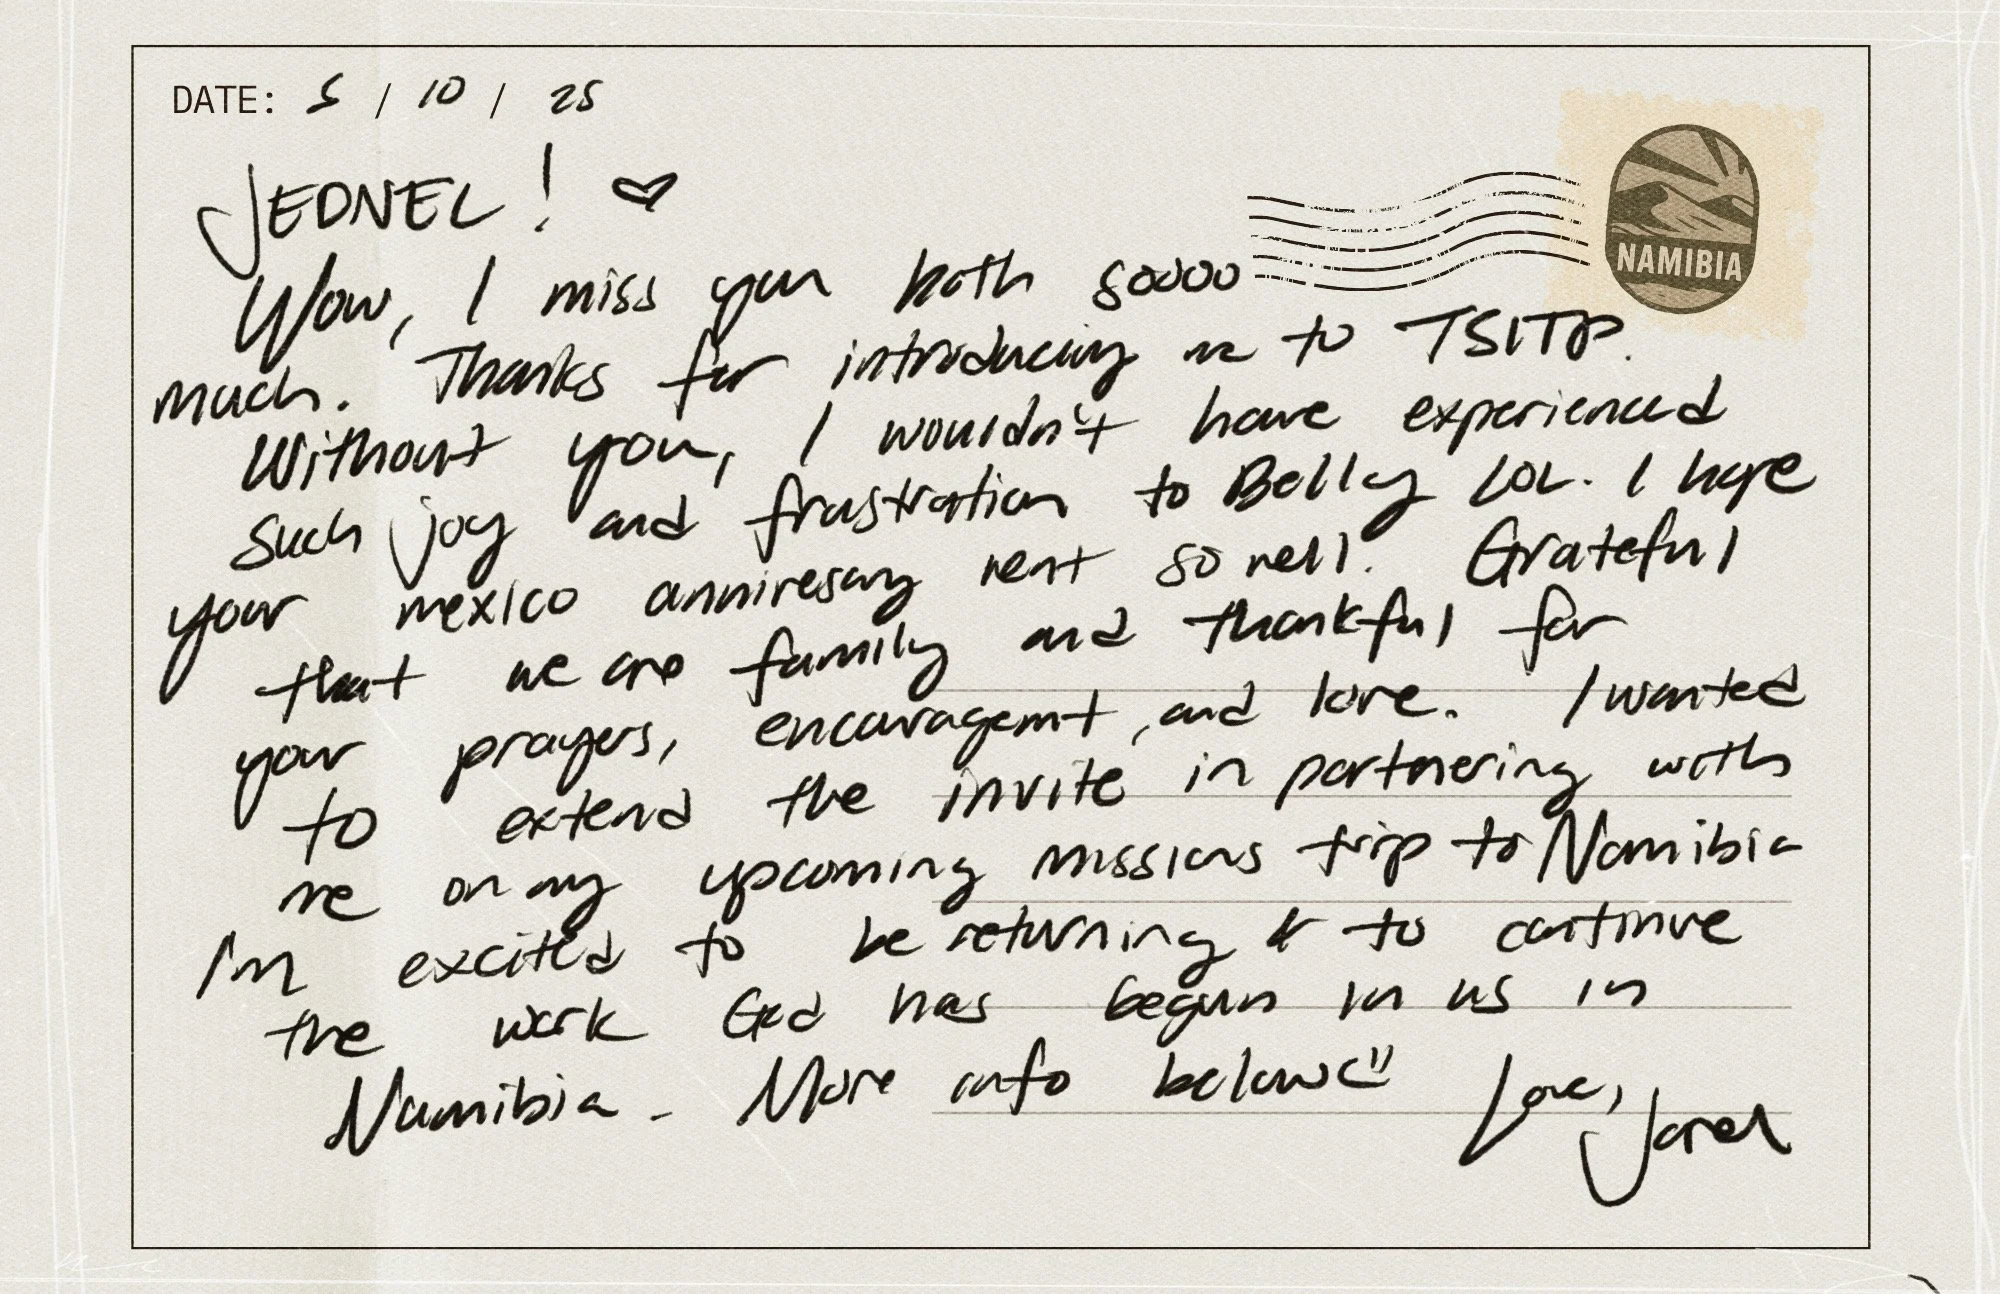 DATE: 5 / 10 / 25
JEDNEL! ♡
Wow, I miss you both soooo
NAMIBIA
much. Thanks for introducing me to TSITP.
Without you, I wouldn't have experienced
such joy and frustration to Belly LOL. I hope
your mexico anniversary went so well. Grateful
that we are family and thankful for
your prayers, encouragemt, and love. I wanted
to extend the invite in partnering with
me on my upcoming missions trip to Namibia
I'm excited to be returning & to continue
the work God has begun in us in
Namibia. More info below :)
Love, Jarel